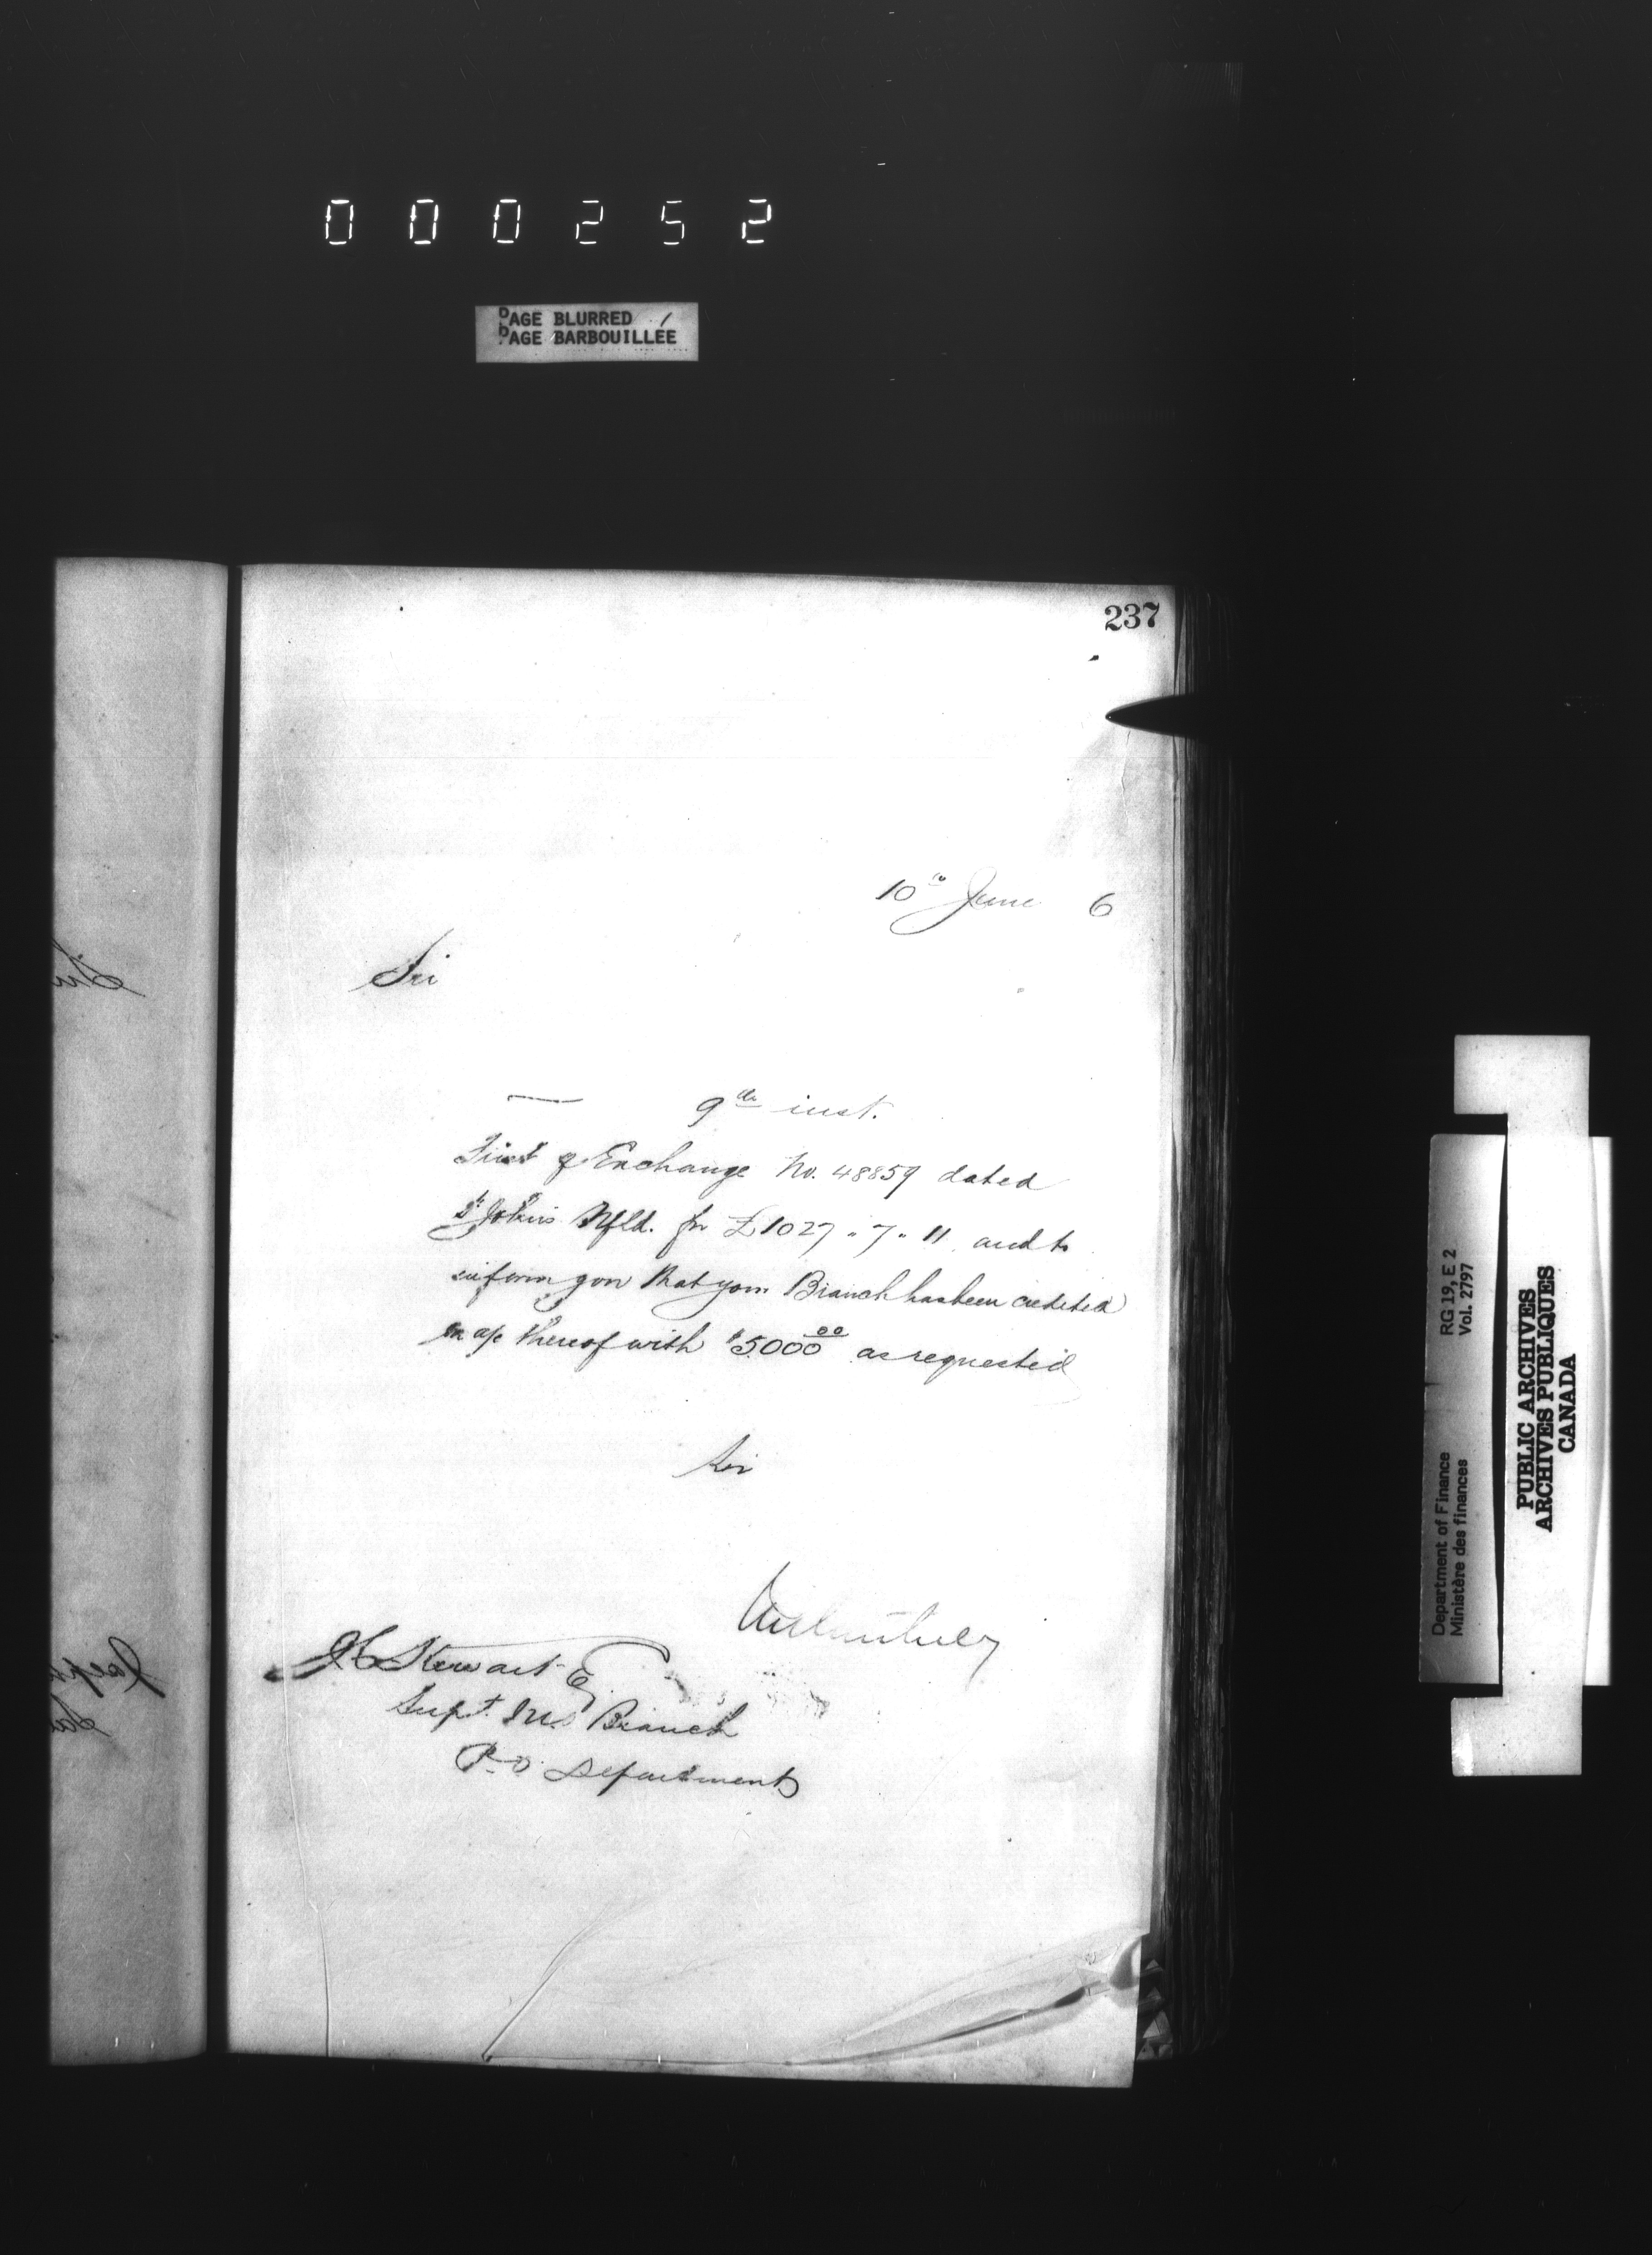 000252
PAGE BLURRED
PAGE BARBOUILLÉE
237
10th June 6
Sir
9th inst.
First of Exchange No. 48859 dated
St John's Nfld. for £1027 " 7 " 11 and to
inform you that your Branch has been credited
on a/c thereof with $5000 00 as requested
Sir
J C Stewart Esq
Supt. M.O Branch
P.O Department
Department of Finance
Ministère des finances
RG 19, E 2
Vol. 2797
PUBLIC ARCHIVES
ARCHIVES PUBLIQUES
CANADA